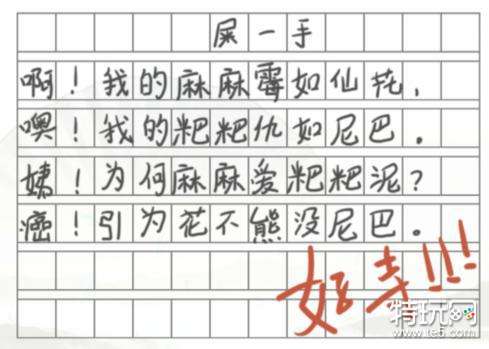 屎一手
啊！我的麻麻霉如仙花，
噢！我的粑粑仇如尼巴。
姨！为何麻麻爱粑粑泥？
癌！引为花不熊没尼巴。
好寺!!!
特玩网
www.te5.com